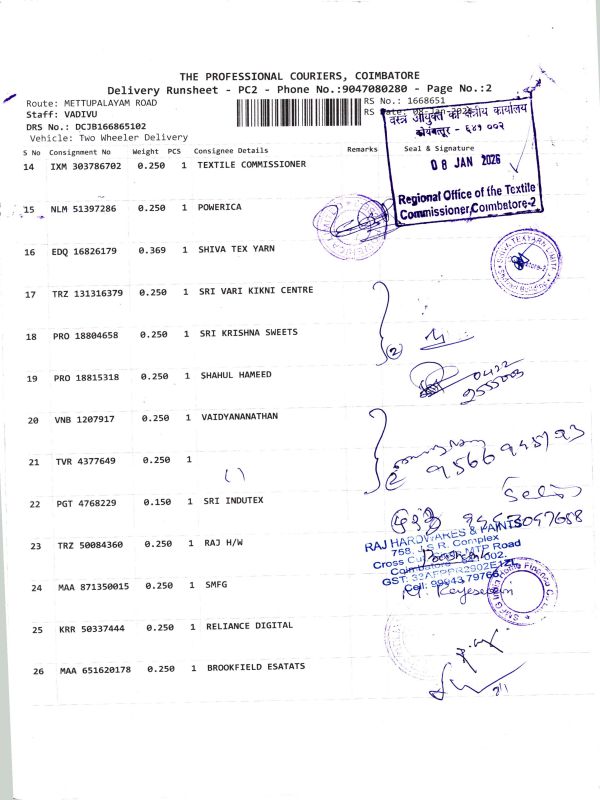 THE PROFESSIONAL COURIERS, COIMBATORE
Delivery Runsheet - PC2 - Phone No.:9047080280 - Page No.:2
Route: METTUPALAYAM ROAD
RS No.: 1668651
Staff: VADIVU
RS Date: 08-Jan-
DRS No.: DCJB166865102
Vehicle: Two Wheeler Delivery
वस्त्र आयुक्त का क्षेत्रीय कार्यालय
कोयंबत्तूर - ६४१ ००२
08 JAN 2026
Regional Office of the Textile
Commissioner, Coimbatore-2
S No Consignment No Weight PCS Consignee Details Remarks Seal & Signature
14 IXM 303786702 0.250 1 TEXTILE COMMISSIONER
15 NLM 51397286 0.250 1 POWERICA
16 EDQ 16826179 0.369 1 SHIVA TEX YARN
17 TRZ 131316379 0.250 1 SRI VARI KIKNI CENTRE
18 PRO 18804658 0.250 1 SRI KRISHNA SWEETS
2
19 PRO 18815318 0.250 1 SHAHUL HAMEED
0422
20 VNB 1207917 0.250 1 VAIDYANANATHAN
21 TVR 4377649 0.250 1
2
22 PGT 4768229 0.150 1 SRI INDUTEX
23 TRZ 50084360 0.250 1 RAJ H/W
RAJ HARDWARES & PAINTS
758, J.S.R. Complex
Cross Cut MTP Road
Cell: 99943 79766
24 MAA 871350015 0.250 1 SMFG
25 KRR 50337444 0.250 1 RELIANCE DIGITAL
26 MAA 651620178 0.250 1 BROOKFIELD ESATATS